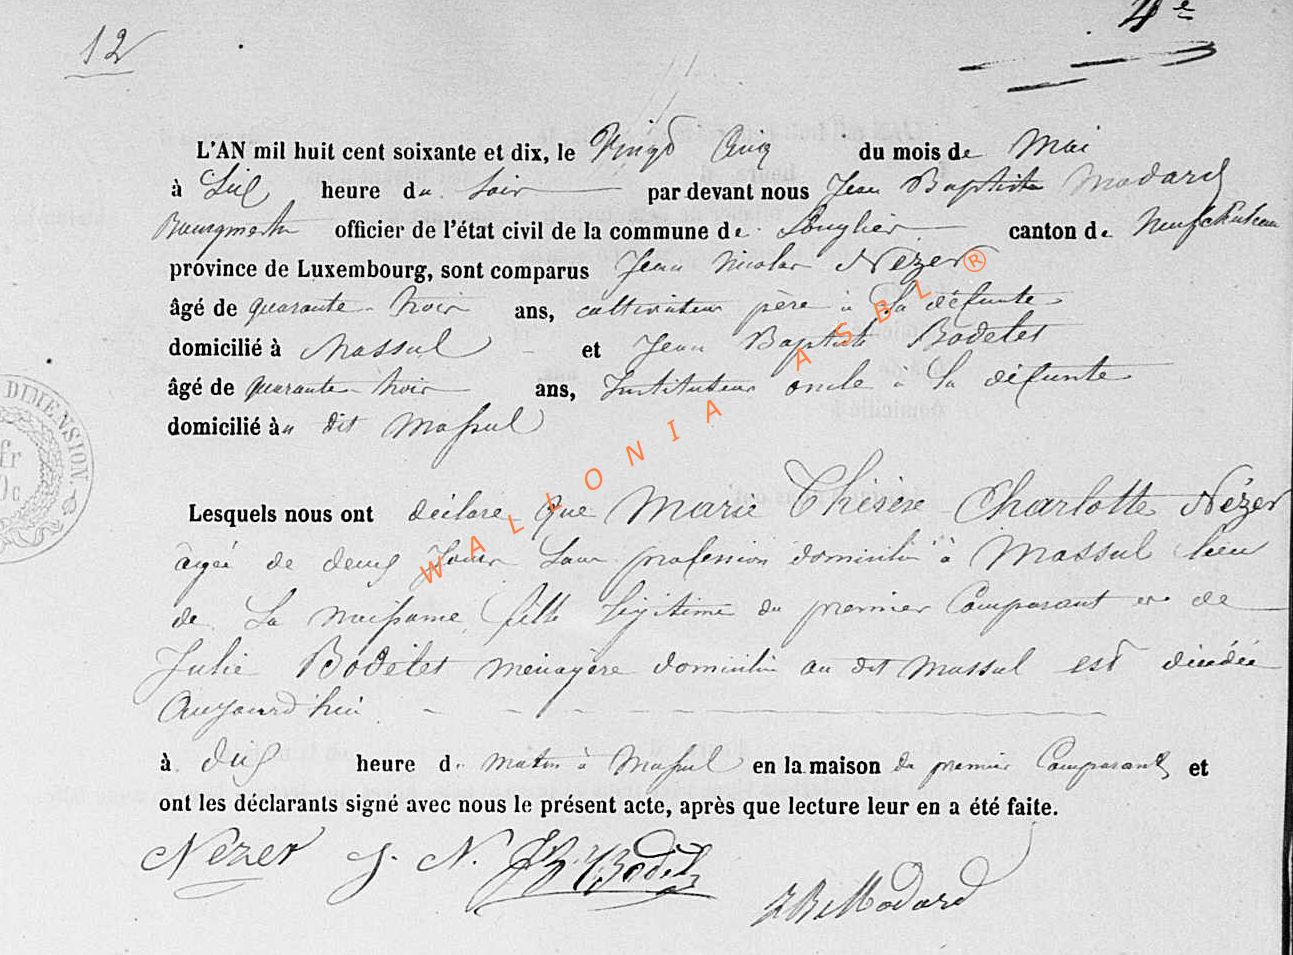 12
4e
L'AN mil huit cent soixante et dix, le Vingt Cinq du mois de Mai
à Six heure du Soir par devant nous Jean Baptiste Modard
Bourgmestre officier de l'état civil de la commune de Longlier canton de Neufchateau
province de Luxembourg, sont comparus Jean Nicolas Nézer
âgé de quarante trois ans, cultivateur père à la défunte
domicilié à Massul et Jean Baptiste Bodelet
âgé de quarante trois ans, Instituteur oncle à la défunte
domicilié àu dit Massul
DIMENSION
WALLONIA ASBL ®
Lesquels nous ont déclaré que Marie Thésèse Charlotte Nézer
agée de deux Jours Sans profession domicilié à Massul lieu
de Sa naissance, fille Légitime du premier Comparant et de
Julie Bodelet menagère domicilié au dit Massul est décédée
Aujourd'hui
à dix heure du matin à Massul en la maison du premier Comparant et
ont les déclarants signé avec nous le présent acte, après que lecture leur en a été faite.
Nézer J. N. JB Bodelet
JB Modard